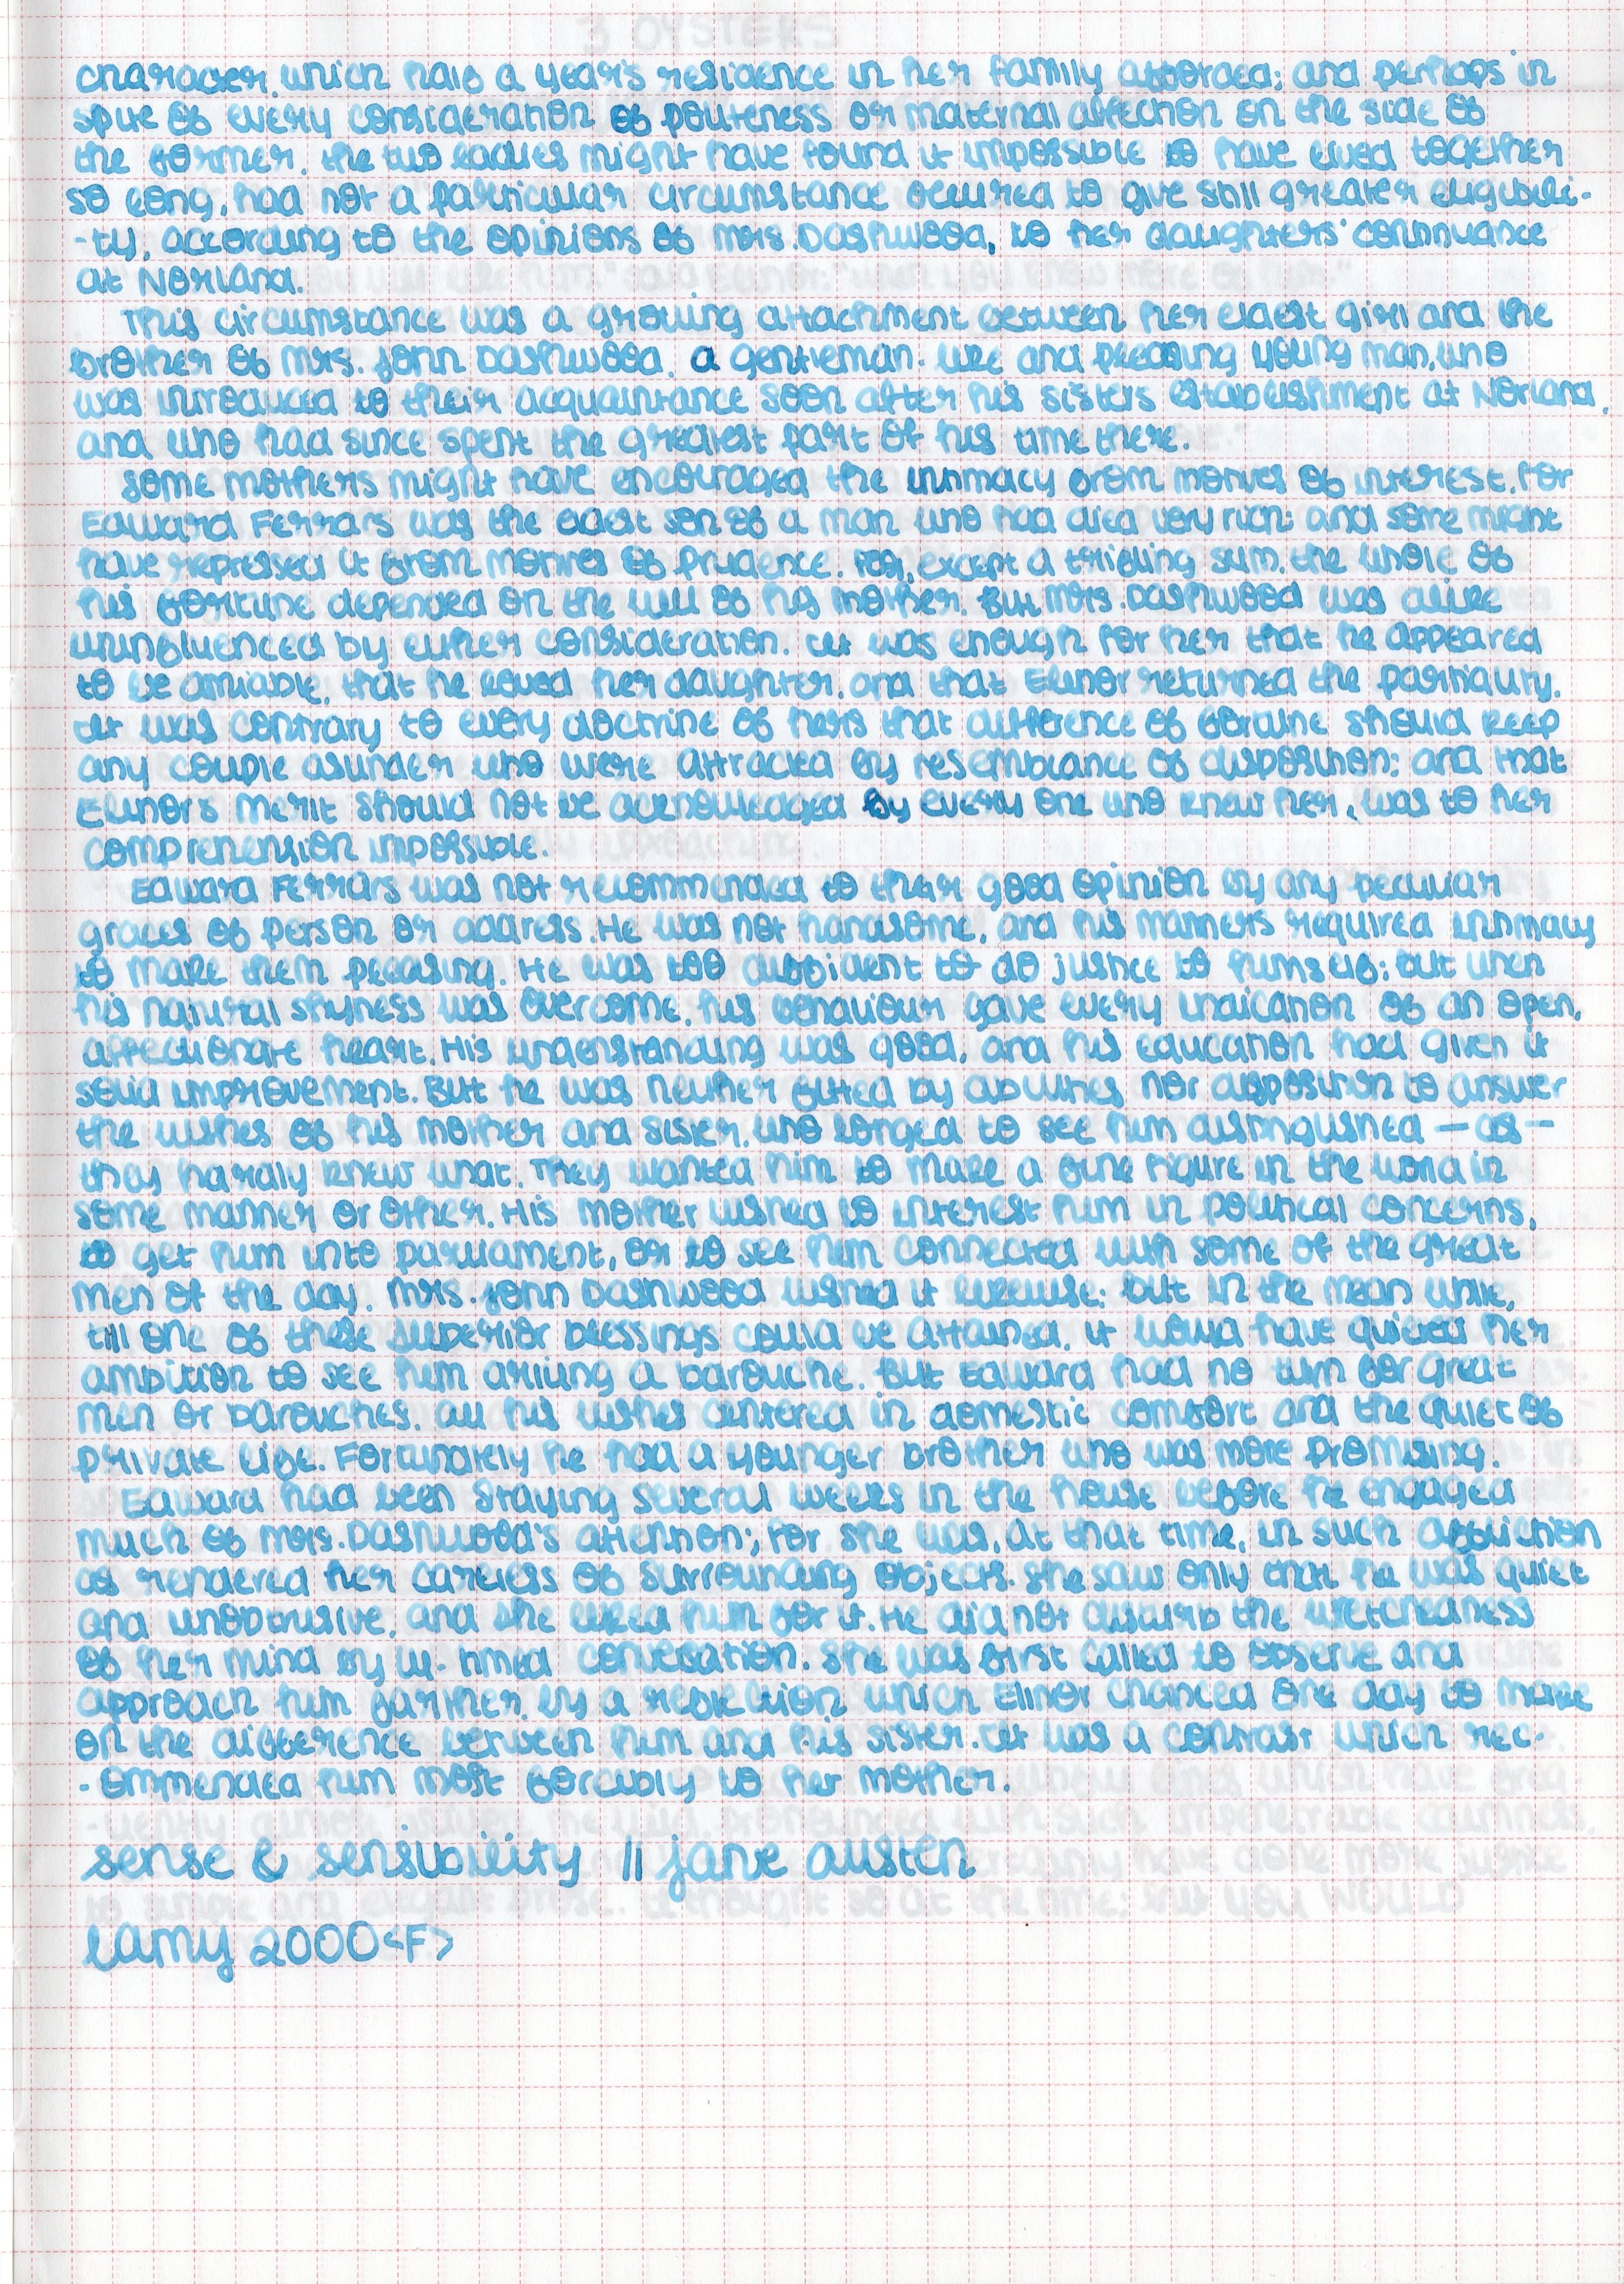 character, which half a year's residence in her family afforded; and perhaps in
spite of every consideration of politeness or maternal affection on the side of
the former, the two ladies might have found it impossible to have lived together
so long, had not a particular circumstance occurred to give still greater eligibili-
-ty, according to the opinions of Mrs. Dashwood, to her daughters' continuance
at Norland.
This circumstance was a growing attachment between her eldest girl and the
brother of Mrs. John Dashwood, a gentleman-like and pleasing young man, who
was introduced to their acquaintance soon after his sisters establishment at Norland,
and who had since spent the greatest part of his time there.
Some mothers might have encouraged the intimacy from motives of interest, for
Edward Ferrars was the eldest son of a man who had died very rich; and some might
have repressed it from motives of prudence, for, except a trifling sum, the whole of
his fortune depended on the will of his mother. But Mrs. Dashwood was alike
uninfluenced by either consideration. It was enough for her that he appeared
to be amiable, that he loved her daughter, and that Elinor returned the partiality.
It was contrary to every doctrine of hers that difference of fortune should keep
any couple asunder who were attracted by resemblance of disposition; and that
Elinor's merit should not be acknowledged by every one who knew her, was to her
comprehension impossible.
Edward Ferrars was not recommended to their good opinion by any peculiar
graces of person or address. He was not handsome, and his manners required intimacy
to make them pleasing. He was too diffident to do justice to himself; but when
his natural shyness was overcome, his behaviour gave every indication of an open,
affectionate heart. His understanding was good, and his education had given it
solid improvement. But he was neither fitted by abilities nor disposition to answer
the wishes of his mother and sister, who longed to see him distinguished — as —
they hardly knew what. They wanted him to make a fine figure in the world in
some manner or other. His mother wished to interest him in political concerns,
to get him into parliament, or to see him connected with some of the great
men of the day. Mrs. John Dashwood wished it likewise; but in the mean while,
till one of these superior blessings could be attained, it would have quieted her
ambition to see him driving a barouche. But Edward had no turn for great
men or barouches. All his wishes centered in domestic comfort and the quiet of
private life. Fortunately he had a younger brother who was more promising.
Edward had been staying several weeks in the house before he engaged
much of Mrs. Dashwood's attention; for she was, at that time, in such affliction
as rendered her careless of surrounding objects. She saw only that he was quiet
and unobtrusive, and she liked him for it. He did not disturb the wretchedness
of her mind by ill-timed conversation. She was first called to observe and
approach him farther, by a reflection which Elinor chanced one day to make
on the difference between him and his sister. It was a contrast which rec-
-ommended him most forcibly to her mother.
sense & sensibility || jane austen
lamy 2000 <F>